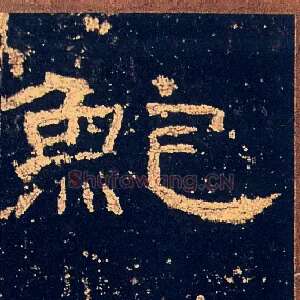 鮀
Shufawang.CN